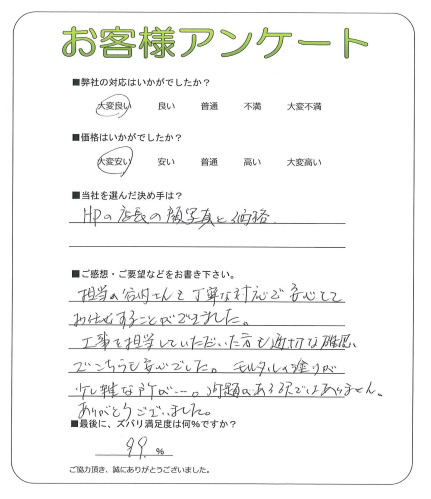 お客様アンケート
■弊社の対応はいかがでしたか？
大変良い 良い 普通 不満 大変不満
■価格はいかがでしたか？
大変安い 安い 普通 高い 大変高い
■当社を選んだ決め手は？
HPの店長の顔写真と価格
■ご感想・ご要望などをお書き下さい。
担当の さんも丁寧な対応で安心して
お任せすることができました。
工事を担当していただいた方も適切な確認
でこちらも安心でした。モルタルの塗りが
少し雑な所が…。問題のある訳ではありません。
ありがとうございました。
■最後に、ズバリ満足度は何％ですか？
99 %
ご協力頂き、誠にありがとうございました。